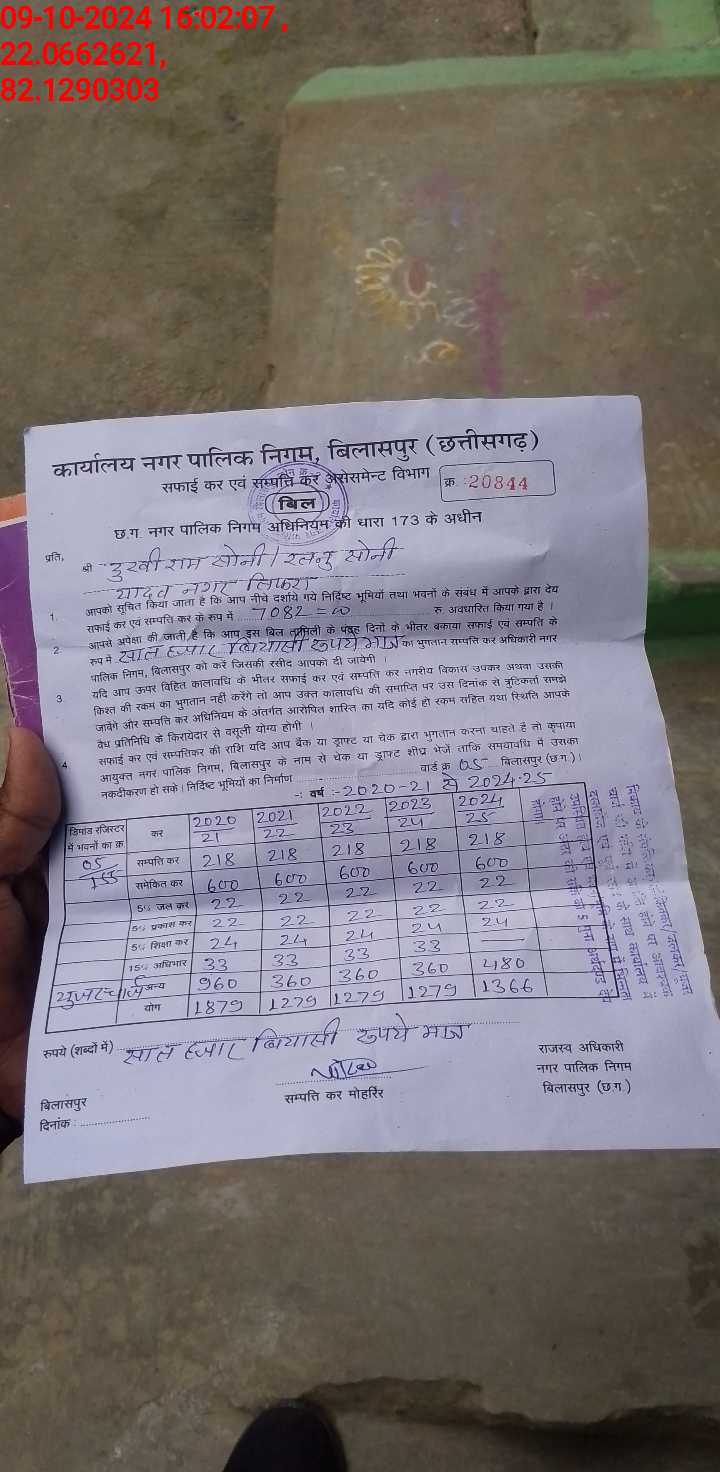 09-10-2024 16:02:07 ,
22.0662621,
82.1290303
कार्यालय नगर पालिक निगम, बिलासपुर (छत्तीसगढ़)
सफाई कर एवं सम्पत्ति कर असेसमेन्ट विभाग
क्र. :20844
बिल
छ.ग. नगर पालिक निगम अधिनियम की धारा 173 के अधीन
प्रति,
श्री दुखी राम सोनी / सोनी
यादव नगर तिफरा
1. आपको सूचित किया जाता है कि आप नीचे दर्शाये गये निर्दिष्ट भूमियों तथा भवनों के संबंध में आपके द्वारा देय
सफाई कर एवं सम्पत्ति कर के रूप में 7082=00 रु. अवधारित किया गया है ।
2 आपसे अपेक्षा की जाती है कि आप इस बिल तामिली के पंद्रह दिनो के भीतर बकाया सफाई एवं सम्पत्ति के
रूप में सात हजार बियासी रुपये मात्र का भुगतान सम्पत्ति कर अधिकारी नगर
पालिक निगम, बिलासपुर को करें जिसकी रसीद आपको दी जायेगी ।
3. यदि आप ऊपर विहित कालावधि के भीतर सफाई कर एवं सम्पत्ति कर नगरीय विकास उपकर अथवा उसकी
किश्त की रकम का भुगतान नहीं करेंगे तो आप उक्त कालावधि की समाप्ति पर उस दिनांक से त्रुटिकर्ता समझे
जावेगे और सम्पत्ति कर अधिनियम के अंतर्गत आरोपित शास्ति का यदि कोई हो रकम सहित यथा स्थिति आपके
वैध प्रतिनिधि के किरायेदार से वसूली योग्य होगी ।
4 सफाई कर एवं सम्पत्तिकर की राशि यदि आप बैंक या ड्राफ्ट या चेक द्वारा भुगतान करना चाहते है तो कृपाया
आयुक्त नगर पालिक निगम, बिलासपुर के नाम से चेक या ड्राफ्ट शीघ्र भेजें ताकि समयावधि में उसका
नकदीकरण हो सके। निर्दिष्ट भूमियों का निर्माण वार्ड क्र 05 बिलासपुर (छ.ग.)।
-: वर्ष :-2020-21 से 2024-25
डिमांड रजिस्टर में भवनों का क्र. कर 2020/21 2021/22 2022/23 2023/24 2024/25
05/155 सम्पति कर 218 218 218 218 218
समेकित कर 600 600 600 600 600
5% जल कर 22 22 22 22 22
5% प्रकाश कर 22 22 22 22 22
5% शिक्षा कर 24 24 24 24 24
15% अधिभार 33 33 33 33 —
यूजर चार्ज अन्य 960 360 360 360 480
योग 1879 1279 1279 1279 1366
रुपये (शब्दों में) सात हजार बियासी रुपये मात्र
बिलासपुर
दिनांक :
सम्पत्ति कर मोहर्रिर
राजस्व अधिकारी
नगर पालिक निगम
बिलासपुर (छ.ग.)